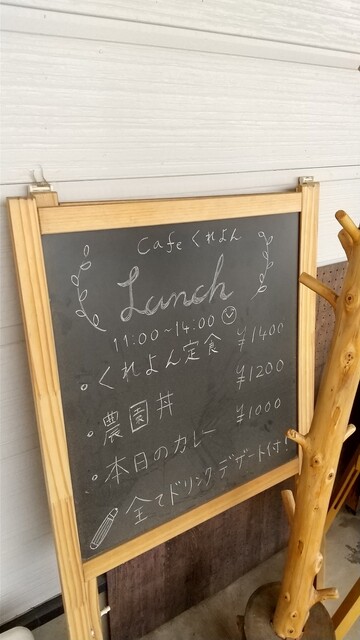 Cafe くれよん
Lunch
11:00~14:00
。くれよん定食 ¥1400
。農園丼 ¥1200
。本日のカレー ¥1000
全てドリンクデザート付!